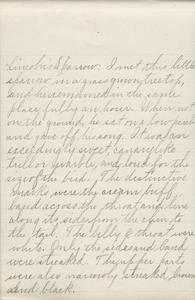 Lincoln's Sparrow: I met this little
sparrow in a grass grown treetop,
and he remained in the same
place fully an hour. When not
on the ground, he sat on a low perch
and gave off his song. It was an
exceedingly sweet, canary like
trill or warble, and loud for the
size of the bird. The distinctive
marks, were the cream buff
band across the throat and line
along its side from the
to the tail. The belly & throat were
white. Only the sides and band
were streaked. The upper parts
were also narrowly streaked, brown
and black.